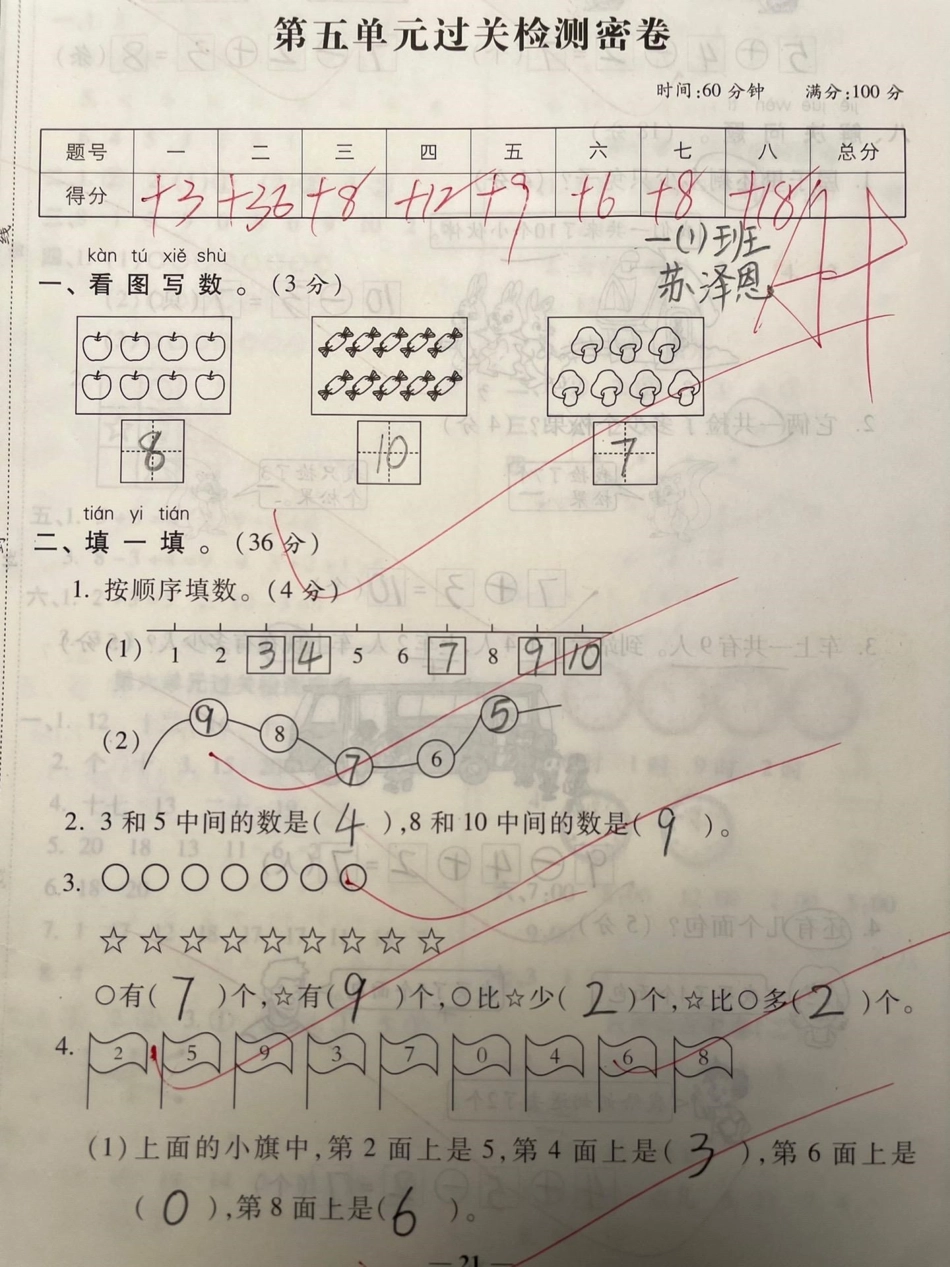 第五单元过关检测密卷
时间:60 分钟 满分:100 分
题号 一 二 三 四 五 六 七 八 总分
得分 +3 +36 +8 +12 +9 +6 +8 +18
一(1)班
苏泽恩
kàn tú xiě shù
一、看图写数。(3 分)
8 10 7
tián yi tián
二、填一填。(36 分)
1. 按顺序填数。(4 分)
(1) 1 2 3 4 5 6 7 8 9 10
(2) 9 8 7 6 5
2. 3 和 5 中间的数是( 4 ),8 和 10 中间的数是( 9 )。
3. ○○○○○○○
☆☆☆☆☆☆☆☆☆
○有( 7 )个,☆有( 9 )个,○比☆少( 2 )个,☆比○多( 2 )个。
4. 2 5 9 3 7 0 4 6 8
(1) 上面的小旗中,第 2 面上是 5,第 4 面上是( 3 ),第 6 面上是
( 0 ),第 8 面上是( 6 )。
— 21 —